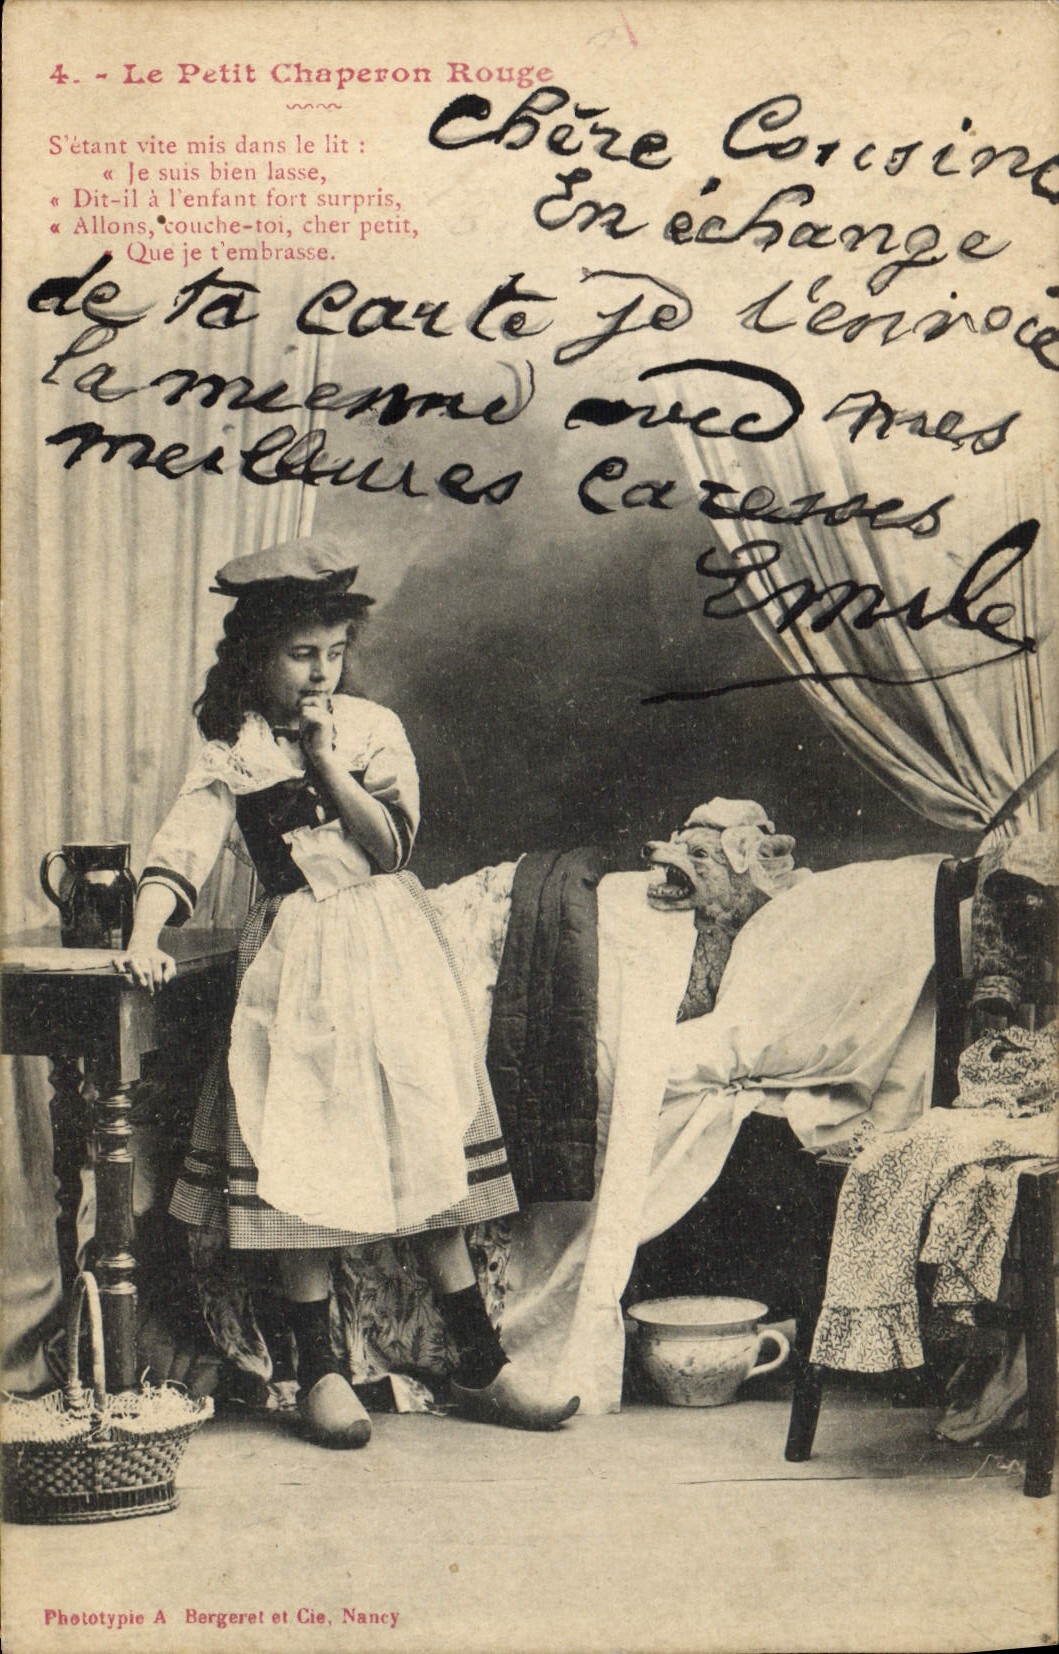 4. - Le Petit Chaperon Rouge
S'étant vite mis dans le lit :
« Je suis bien lasse,
« Dit-il à l'enfant fort surpris,
« Allons, couche-toi, cher petit,
« Que je t'embrasse.
Chère Cousine
En échange
de ta carte je t'envoie
la mienne avec mes
meilleures caresses
Emile
Phototypie A Bergeret et Cie, Nancy